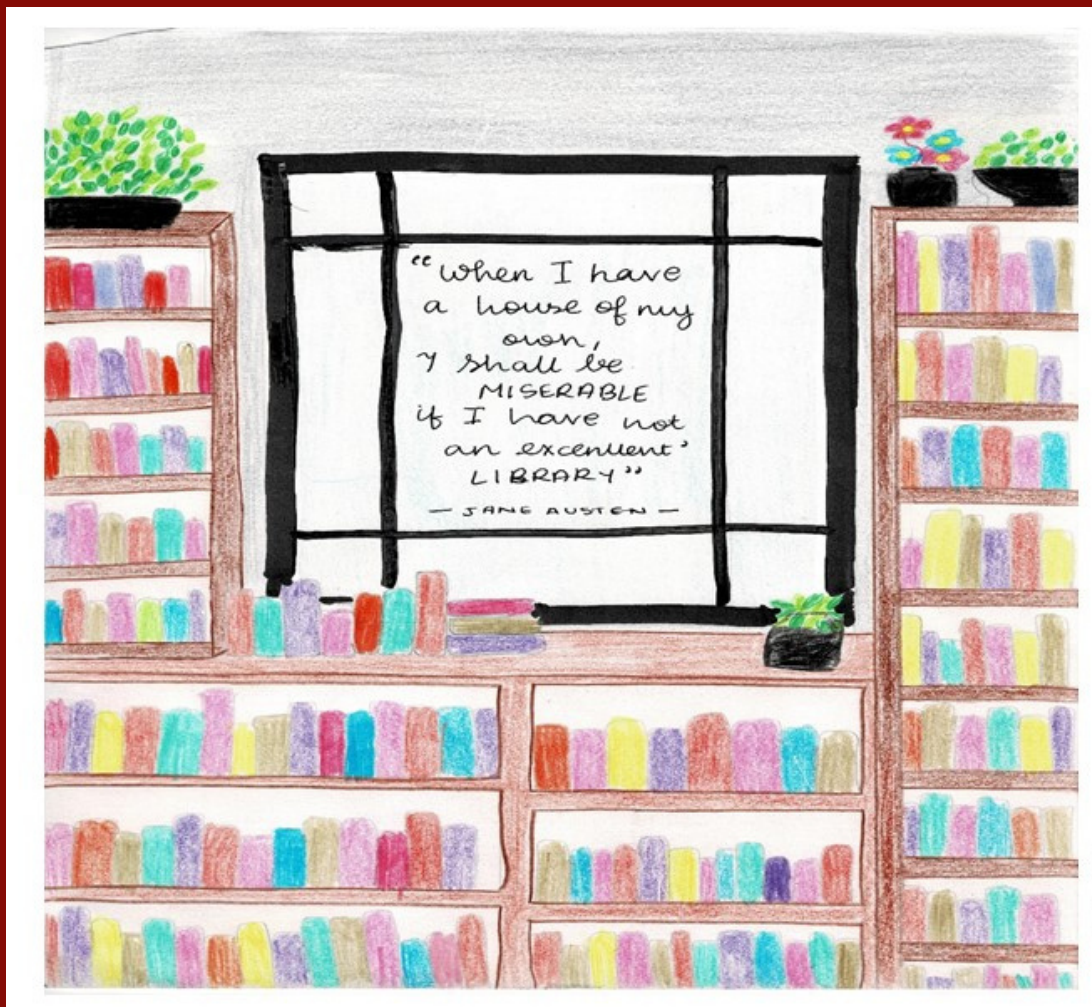 “When I have
a house of my
own,
I shall be
MISERABLE
if I have not
an excenllent’
LIBRARY”
— JANE AUSTEN —